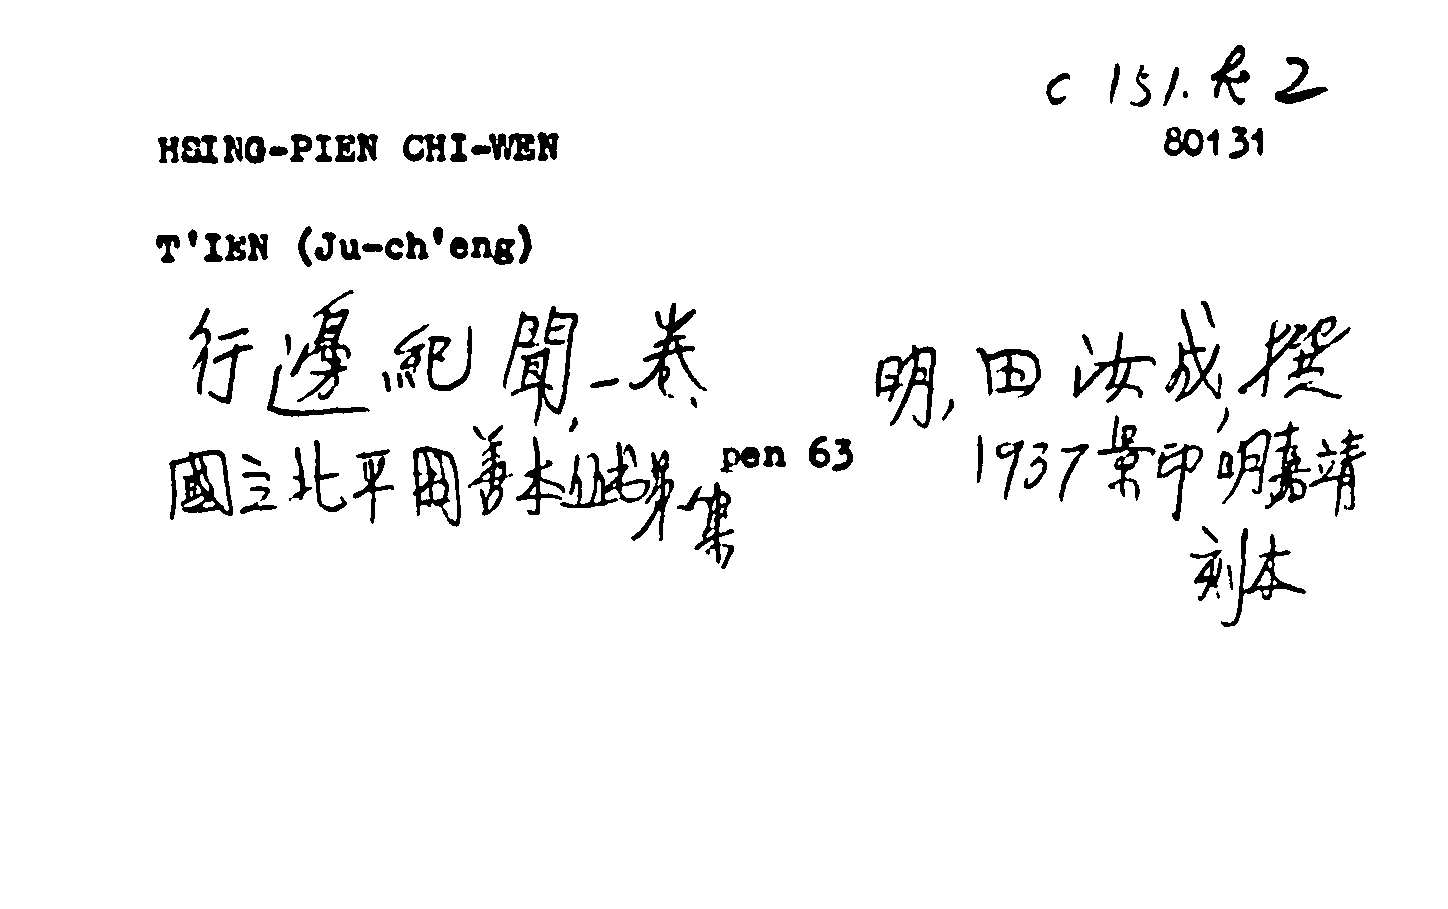 C 151. k 2
80131
HSING-PIEN CHI-WEN
T'IEN (Ju-ch'eng)
行邊紀聞, 一卷. 明, 田汝成, 撰
國立北平圖善本叢書第一集 pen 63 1937 景印, 明嘉靖
刻本